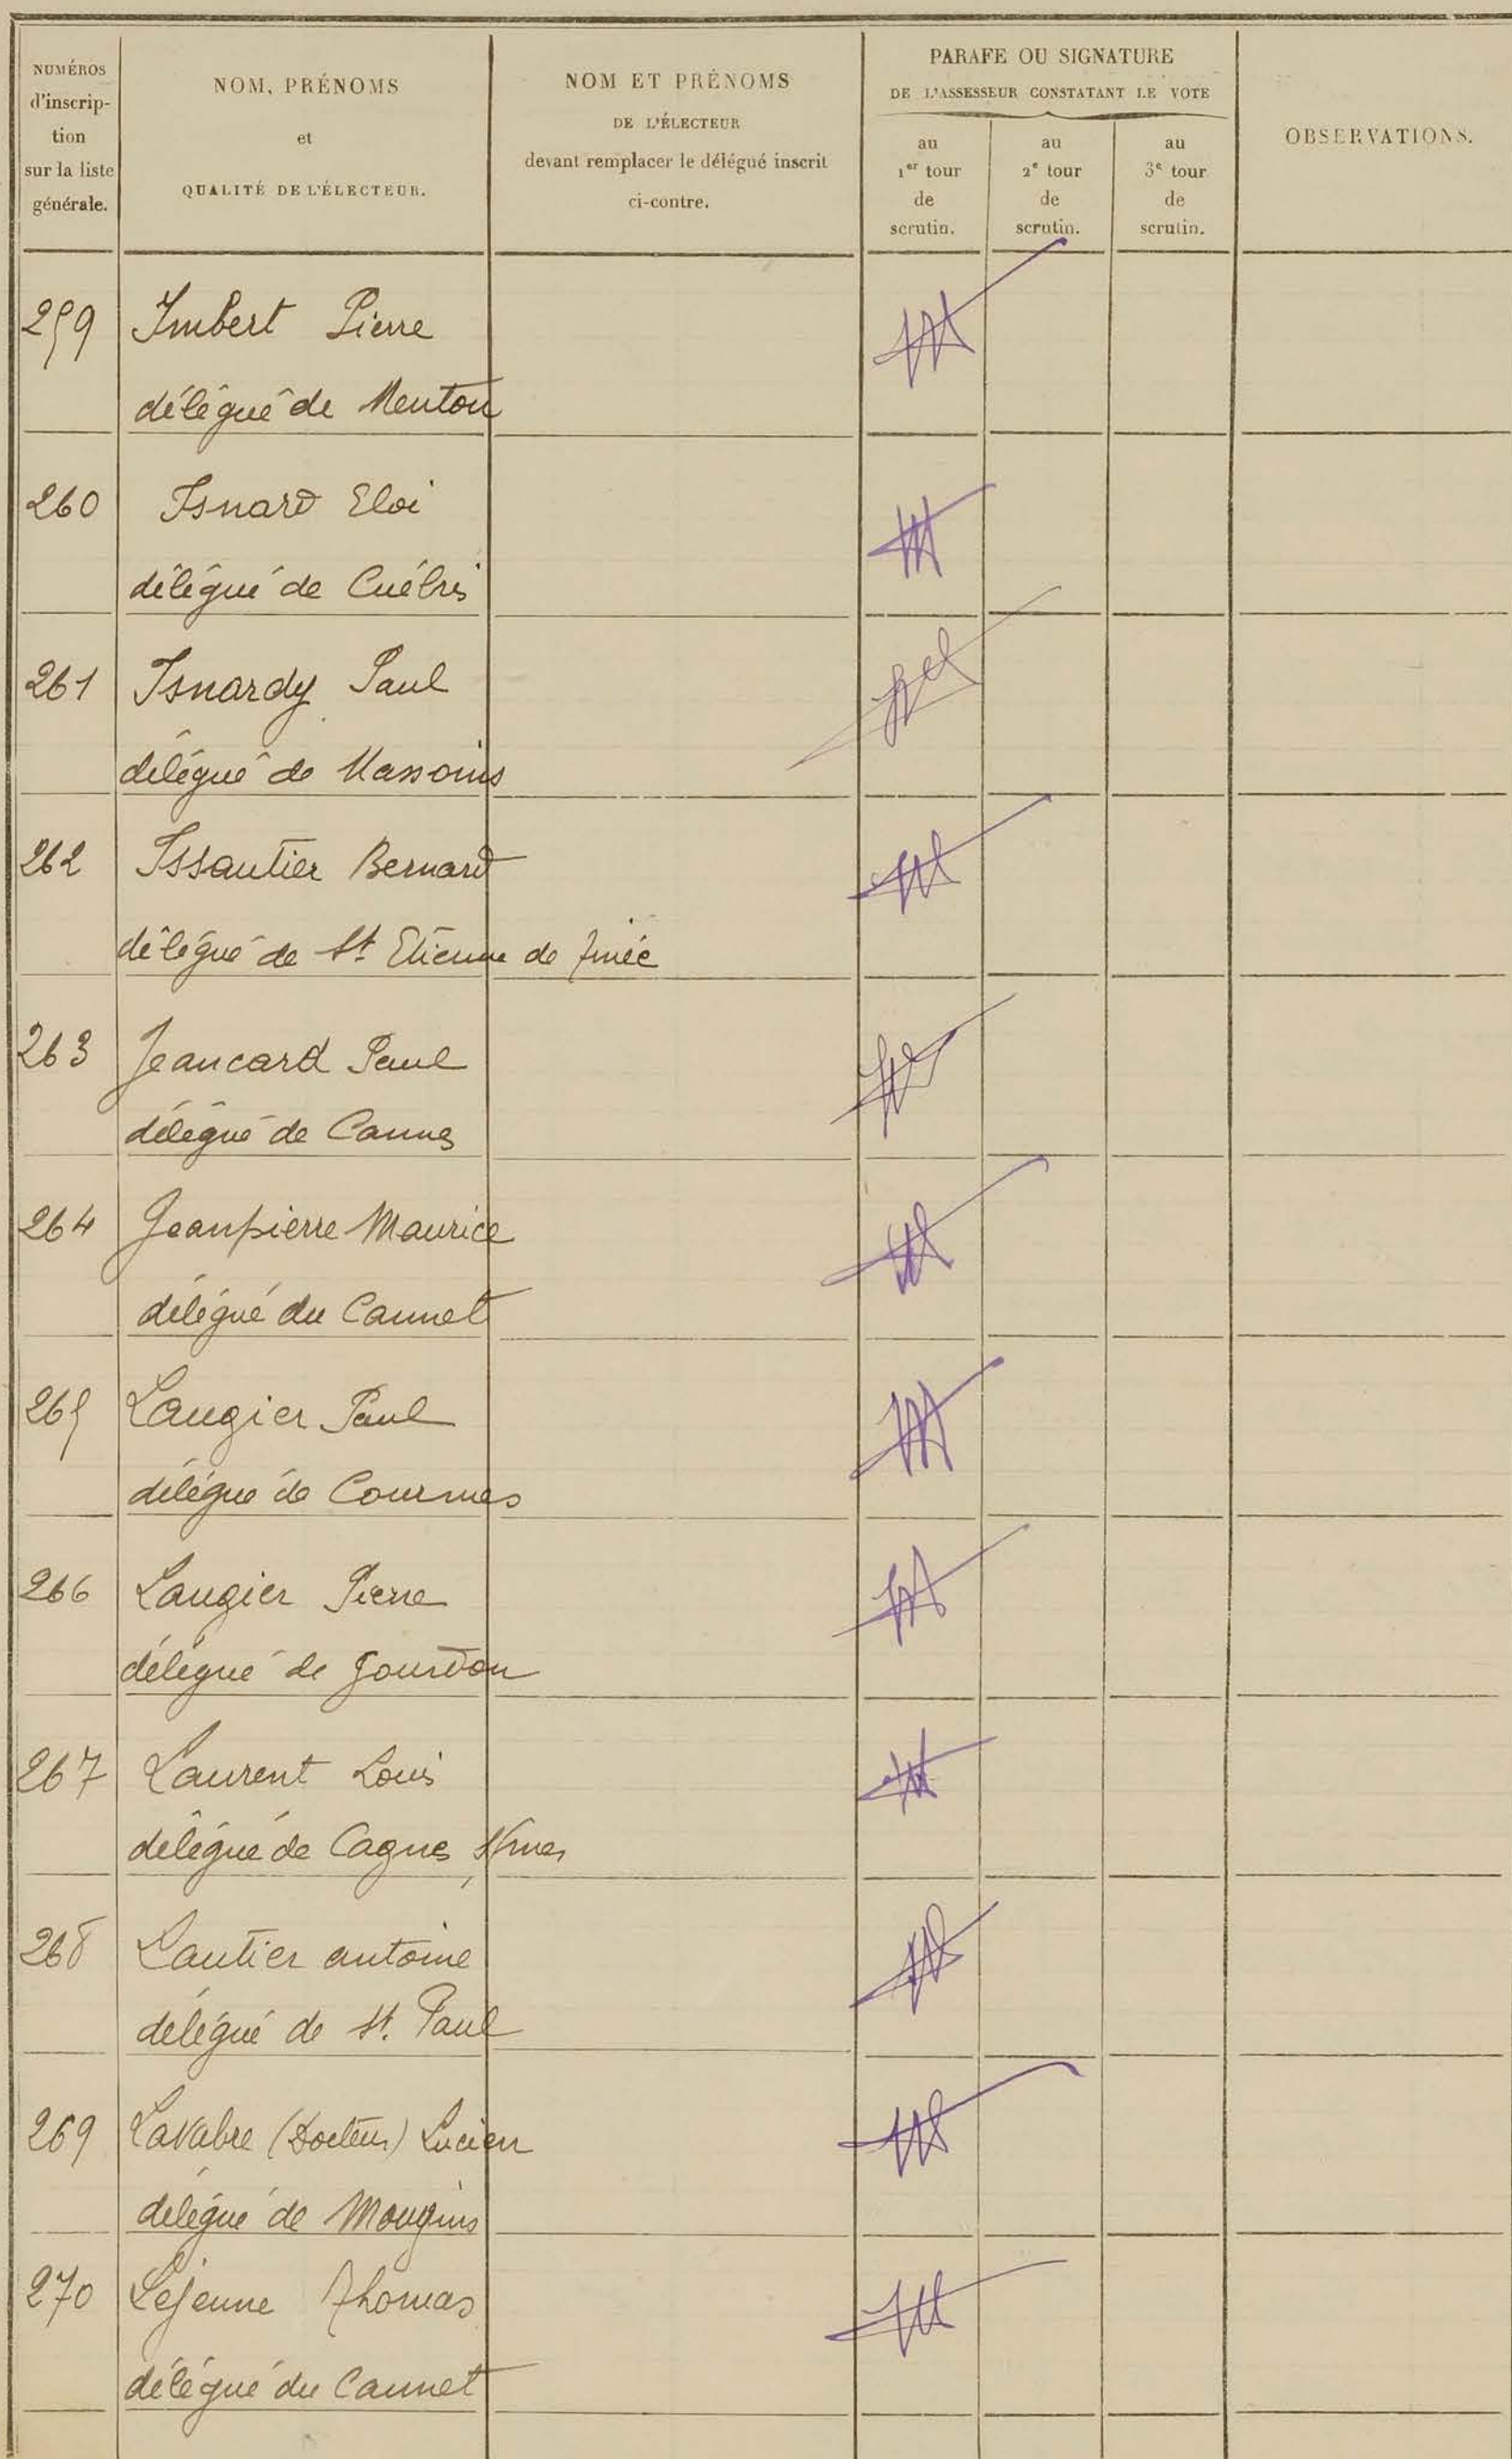 NUMÉROS
d'inscrip-
tion
sur la liste
générale.
NOM, PRÉNOMS
et
QUALITÉ DE L'ÉLECTEUR.
NOM ET PRÉNOMS
DE L'ÉLECTEUR
devant remplacer le délégué inscrit
ci-contre.
PARAFE OU SIGNATURE
DE L'ASSESSEUR CONSTATANT LE VOTE
au
1er tour
de
scrutin.
au
2e tour
de
scrutin.
au
3e tour
de
scrutin.
OBSERVATIONS.
259 Imbert Pierre
délégué de Menton
260 Isnard Eloi
délégué de Cuébris
261 Isnardy Paul
délégué de Massoins
262 Issautier Bernard
délégué de St Etienne de Tinée
263 Jeancard Paul
délégué de Cannes
264 Jeanpierre Maurice
délégué du Cannet
265 Laugier Paul
délégué de Courmes
266 Laugier Pierre
délégué de Gourdon
267 Laurent Louis
délégué de Cagnes
268 Lautier antoine
délégué de St. Paul
269 Lavabre (Docteur) Lucien
délégué de Mougins
270 Lejeune Thomas
délégué du Cannet